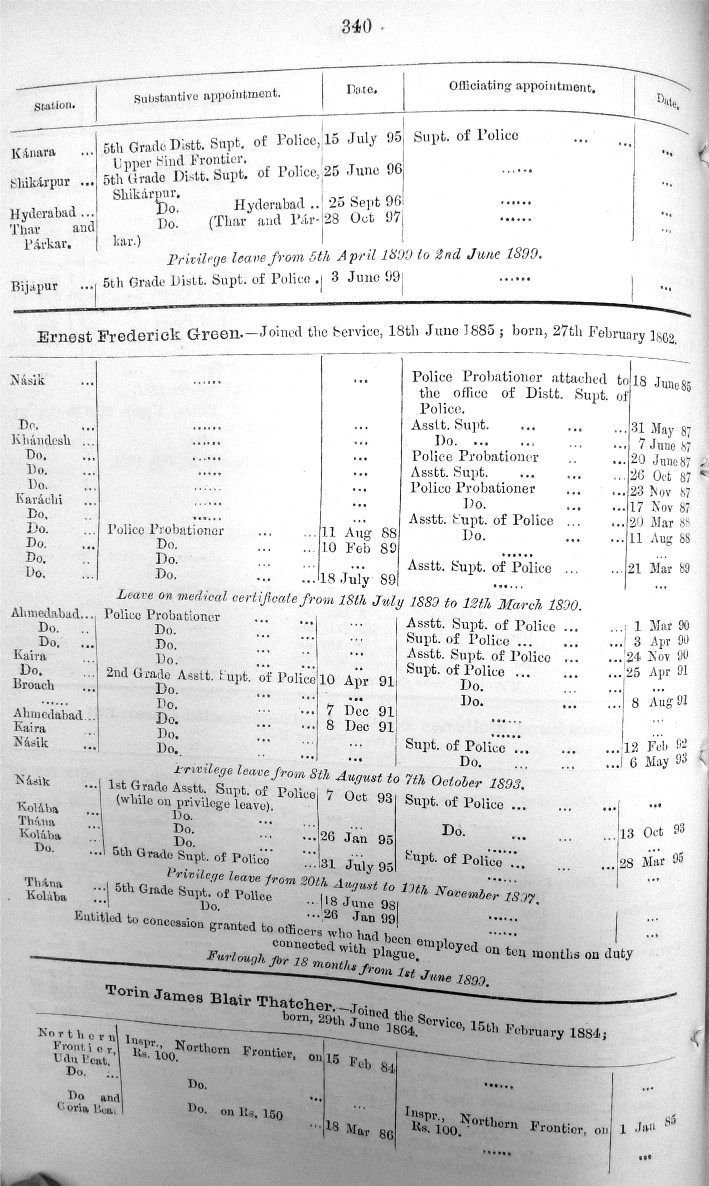 340
Station. Substantive appointment. Date. Officiating appointment. Date.
Kánara ... 5th Grade Distt. Supt. of Police, 15 July 95 Supt. of Police ... ... ...
Upper Sind Frontier.
Shikárpur ... 5th Grade Distt. Supt. of Police, 25 June 96 ...... ...
Shikárpur.
Hyderabad ... Do. Hyderabad .. 25 Sept 96 ...... ...
Thar and Do. (Thar and Pár- 28 Oct 97 ...... ...
Párkar. kar.)
Privilege leave from 5th April 1899 to 2nd June 1899.
Bijápur ... 5th Grade Distt. Supt. of Police . 3 June 99 ...... ...
Ernest Frederick Green.—Joined the Service, 18th June 1885 ; born, 27th February 1862.
Násik ... ...... ... Police Probationer attached to 18 June 85
the office of Distt. Supt. of
Police.
Do. ... ...... ... Asstt. Supt. ... ... ... 31 May 87
Khándesh ... ...... ... Do. ... ... ... 7 June 87
Do. ... ...... ... Police Probationer .. ... 20 June 87
Do. ... ...... ... Asstt. Supt. ... ... ... 26 Oct 87
Do. ... ...... ... Police Probationer ... ... 23 Nov 87
Karáchi ... ...... ... Do. ... ... 17 Nov 87
Do. .. ...... ... Asstt. Supt. of Police ... ... 20 Mar 88
Do. .. Police Probationer ... ... 11 Aug 88 Do. ... ... 11 Aug 88
Do. ... Do. ... ... 10 Feb 89 ...... ...
Do. .. Do. ... ... ... Asstt. Supt. of Police ... ... 21 Mar 89
Do. .. Do. ... ... 18 July 89 ...... ...
Leave on medical certificate from 18th July 1889 to 12th March 1890.
Ahmedabad... Police Probationer ... ... ... Asstt. Supt. of Police ... ... 1 Mar 90
Do. .. Do. ... ... ... Supt. of Police ... ... ... 3 Apr 90
Do. ... Do. ... ... ... Asstt. Supt. of Police ... ... 24 Nov 90
Kaira .. Do. ... ... .. Supt. of Police ... ... ... 25 Apr 91
Do. .. 2nd Grade Asstt. Supt. of Police 10 Apr 91 Do. ... ... ...
Broach ... Do. ... ... ... Do. ... ... 8 Aug 91
...... Do. ... ... 7 Dec 91 ...... ...
Ahmedabad... Do. ... ... 8 Dec 91 ...... ...
Kaira ... Do. ... ... ... Supt. of Police ... ... ... 12 Feb 92
Násik ... Do.. ... ... ... Do. ... ... 6 May 93
Privilege leave from 8th August to 7th October 1893.
Násik ... 1st Grade Asstt. Supt. of Police 7 Oct 93 Supt. of Police ... ... ... ...
(while on privilege leave).
Kolába ... Do. ... ... ... Do. ... ... 13 Oct 93
Thána ... Do. ... ... 26 Jan 95
Kolába ... Do. ... ... ... Supt. of Police ... ... ... 28 Mar 95
Do. ... 5th Grade Supt. of Police ... 31 July 95 ...... ...
Privilege leave from 20th August to 19th November 1897.
Thána ... 5th Grade Supt. of Police .. 18 June 98 ...... ...
Kolába ... Do. ... 26 Jan 99 ...... ...
Entitled to concession granted to officers who had been employed on ten months on duty
connected with plague.
Furlough for 18 months from 1st June 1899.
Torin James Blair Thatcher.—Joined the Service, 15th February 1884;
born, 29th June 1864.
Northern Inspr., Northern Frontier, on 15 Feb 84 ...... ...
Frontier, Rs. 100.
Udu Beat.
Do. ... Do. ... ... Inspr., Northern Frontier, on 1 Jan 85
Rs. 100.
Do and Do. on Rs. 150 ... 18 Mar 86 ...... ...
Coria Beat